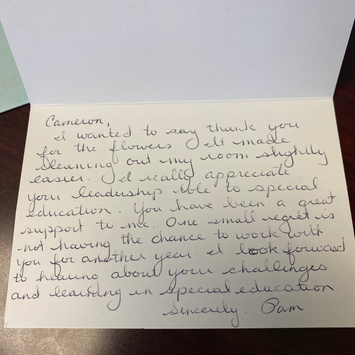 Cameron,
I wanted to say thank you
for the flowers It made
cleaning out my room slightly
easier. I really appreciate
your leadership role to special
education. You have been a great
support to me. One small regret is
not having the chance to work with
you for another year. I look forward
to hearing about your challenges
and learning in special education
Sincerely, Pam